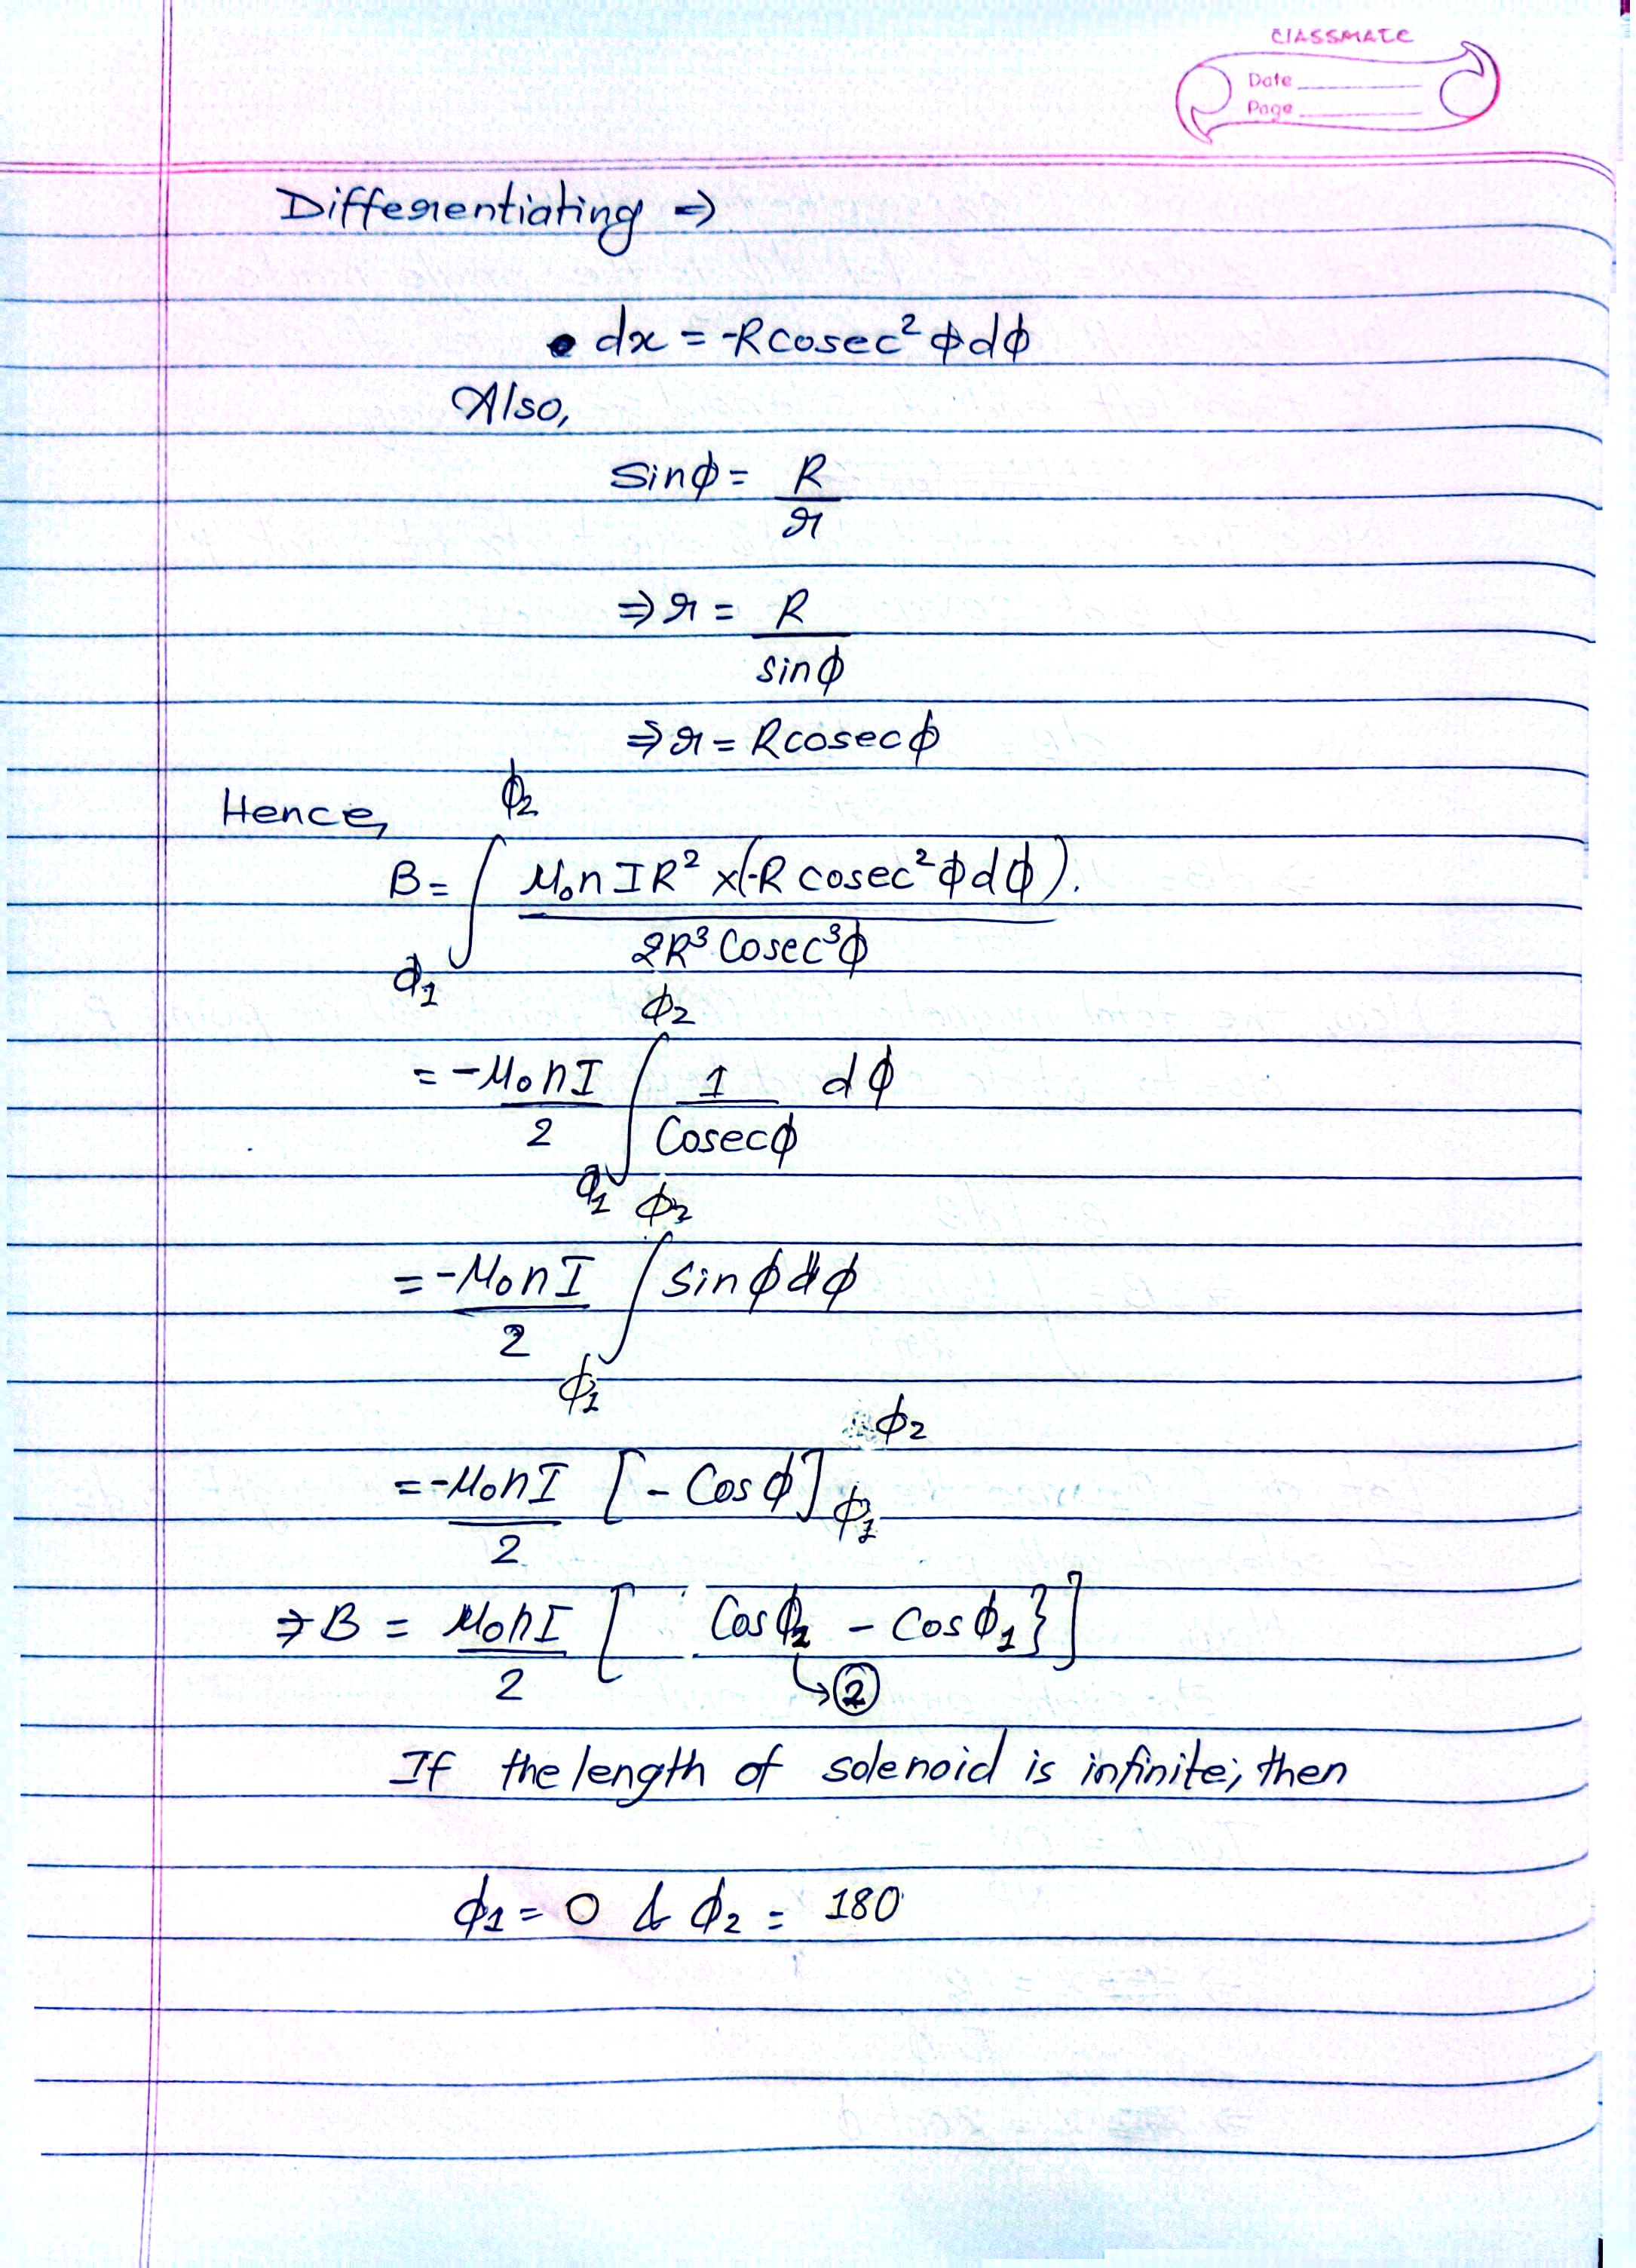 CLASSMATE
Date
Page
Differentiating ⇒
dx = -Rcosec² ϕdϕ
Also,
Sinϕ = R
r
⇒ r = R
sinϕ
⇒ r = Rcosecϕ
Hence,
ϕ2
B = ∫ μ₀nIR² x(-R cosec²ϕdϕ).
2R³ Cosec³ϕ
ϕ1
ϕ2
= -μ₀nI ∫ 1 dϕ
2 Cosecϕ
ϕ1
ϕ2
= -μ₀nI ∫ sinϕdϕ
2
ϕ1
ϕ2
= -μ₀nI [-Cosϕ]
ϕ1
2
⇒ B = μ₀nI [ Cosϕ2 - Cosϕ1}]
2 ↳②
If the length of solenoid is infinite; then
ϕ1 = 0 & ϕ2 = 180